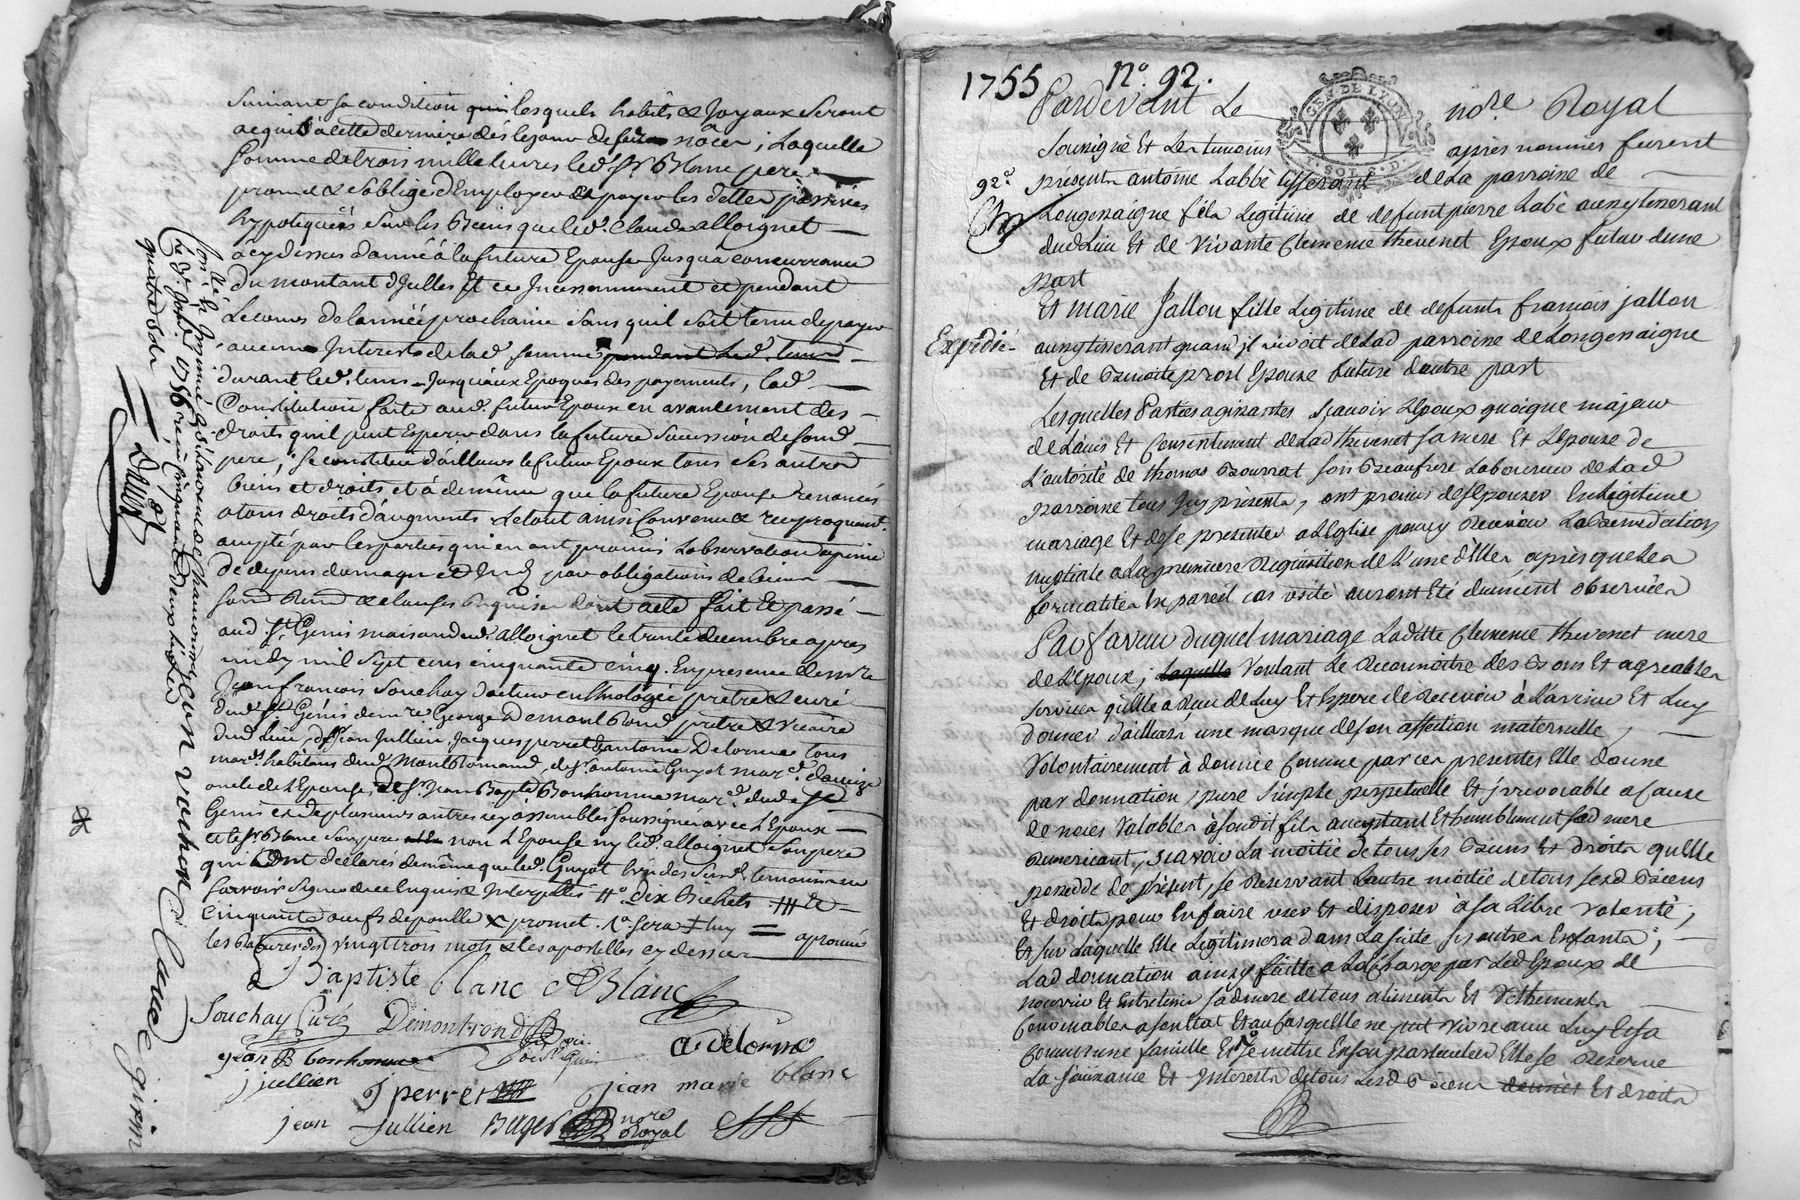 suivant sa condition lesquels habits & Joyaux seront
acquis à cette derniere dès le jour de ses nôces ; Laquelle
somme de trois mille livres led. Sr. Blanc pere
promet & s'oblige d'Employer & payer les dettes passives
hypotiquées sur les Biens que led. Claude alloignet
à cy dessus donné à la future Epouse Jusqua concurrance
du montant d'Jcelles et ce Incessamment et pendant
Le cours de lannée prochaine sans quil soit tenu de payer
aucuns Interests de lad. somme pendant led. temps
durant led. tems Jusquaux Epoques des payements, lad.
Constitution faite aud. futur Epoux en avancement des
droits quil peut Esperer dans la future succession de sond.
pere ; se constitue d'ailleurs le futur Epoux tous ses autres
biens et droits et à de même que la future Epouse renoncés
a tous droits d'augments Le tout ainsi Convenu & reciproquemt.
accepté par les parties qui en ont promis l'observation a peine
de depens domages et Int. par obligations de biens
fait Et passé
aud. St. Genis maison dud. alloignet le trente decembre apres
midy mil sept cens cinquante cinq. En presence de mre
Jean francois Souchay docteur en theologie prêtre & curé
dud. St. Genis de mre George Demontrond prêtre & vicaire
dud. lieu, de Jean Jullien, Jacques perret & antoine Delorme tous
mards. habitans dud. de sr. antoine Guyot mard.
oncle de l'Epouse, de sr. Jean Bapte Bonhomme mard. dud. St.
Genis et de plusieurs autres icy assemblés soussignés avec L'Epoux
et le sr. Blanc son pere non l'Epouse ny led. alloignet son pere
qui ont déclarés de même que led. Guyot l'un des susd. temoins ne
savoir signer de ce Enquis & Interpellés dix bichets
Cinquante œufs de poulle & promet. sera luy = aprouvé
les ratures des vingt trois mots & les apostilles cy dessus
Baptiste blanc Blanc
Souchay Curé Demontrond
jean B bonhomme a delorme
j jullien J perret jean marie blanc
jean Jullien nore Royal
1755 No. 92.
GEN. DE LYON
SOL
Pardevant Le nore. Royal
Soussigné Et Les temoins après nommés furent
92e. présents antoine Labbé tisserant de La parroisse de
Longessaigne fils Legitime de deffunt pierre Labé aussy tisserant
dud Lieu Et de vivante Clemence thevenet Epoux futur d'une
part
Et marie Jallon fille Legitime de deffunts francois jallon
Expédié. aussy tisserant quand il vivoit de Lad parroisse de Longessaigne
Et de Benoite prost Epouse future d'autre part
Lesquelles Parties agissantes Scavoir L'Epoux quoique majeur
de L'avis Et Consentement de Lad thevenet sa mere Et L'Epouse de
L'autorité de thomas son Beaufrere Laboureur de Lad
parroisse tous Icy présents, ont promis de s'Epouser En Legitime
mariage Et de se presenter a L'Eglise pour y Recevoir La benediction
nuptiale a La premiere Requisition de L'une d'Elles après que Les
formalités En pareil cas usité auront Eté duement observées
En faveur duquel mariage Laditte Clemence thevenet mere
de L'Epoux ; Laquelle Voulant Le Reconnoitre des Bons Et agreables
services qu'Elle a Reçu de Luy Et Espere de Recevoir à L'avenir Et Luy
donner d'ailleurs une marque de son affection maternelle,
Volontairement à donnée Comme par ces presentes Elle donne
par donnation, pure simple perpetuelle Et jrrevocable a Cause
de noces Valable à sondit fils acceptant Et humblement sad mere
Remerciant, scavoir La moitié de tous ses Biens Et droits qu'Elle
possedde de présent, se Reservant L'autre moitié de tous sesd Biens
Et droits pour En faire user Et disposer a sa Libre volonté ;
Et sur Laquelle Elle Legitimera dans La suite ses autres Enfants ;
Lad donnation ainsy faitte a La Charge par Led Epoux de
nourrir Et Entretenir sad mere de tous aliments Et Vethements
Convenables a son Etat Et au Cas qu'Elle ne put vivre avec Luy Et sa
Commune famille Et se mettre En son particulier Elle se Reserve
La Jouissance Et Interests de tous Lesd Biens donnés Et droits